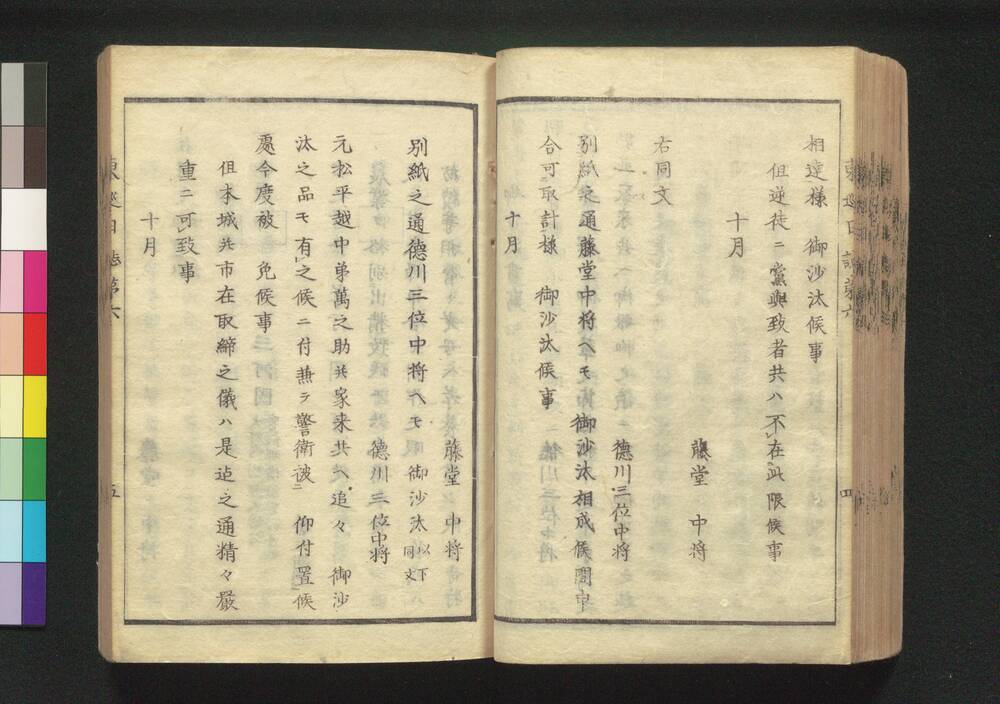 相達様 御沙汰候事
但逆徒ニ黨與致者共ハ不在此限候事
十月
藤堂 中将
右同文
德川三位中将
別紙之通藤堂中将ヘモ御沙汰相成候間申
合可取計様 御沙汰候事
十月
四
藤堂 中将
別紙之通德川三位中将ヘモ 御沙汰以下同文
德川三位中将
元松平越中弟萬之助共家来共ヘ追々 御沙
汰之品モ有之候ニ付兼ラ警衛被 仰付置候
處今度被 免候事
但末城共市在取締之儀ハ是迠之通精々嚴
重ニ可致事
十月
五